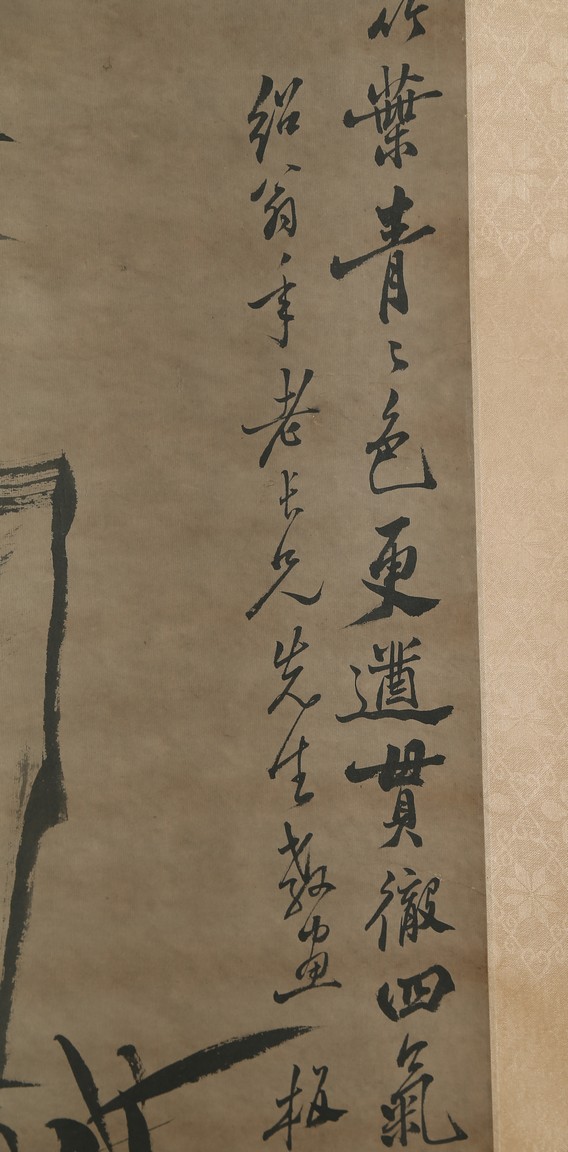 竹葉青〻色更遒貫徹四氣
紹翁年老長兄先生教画 板